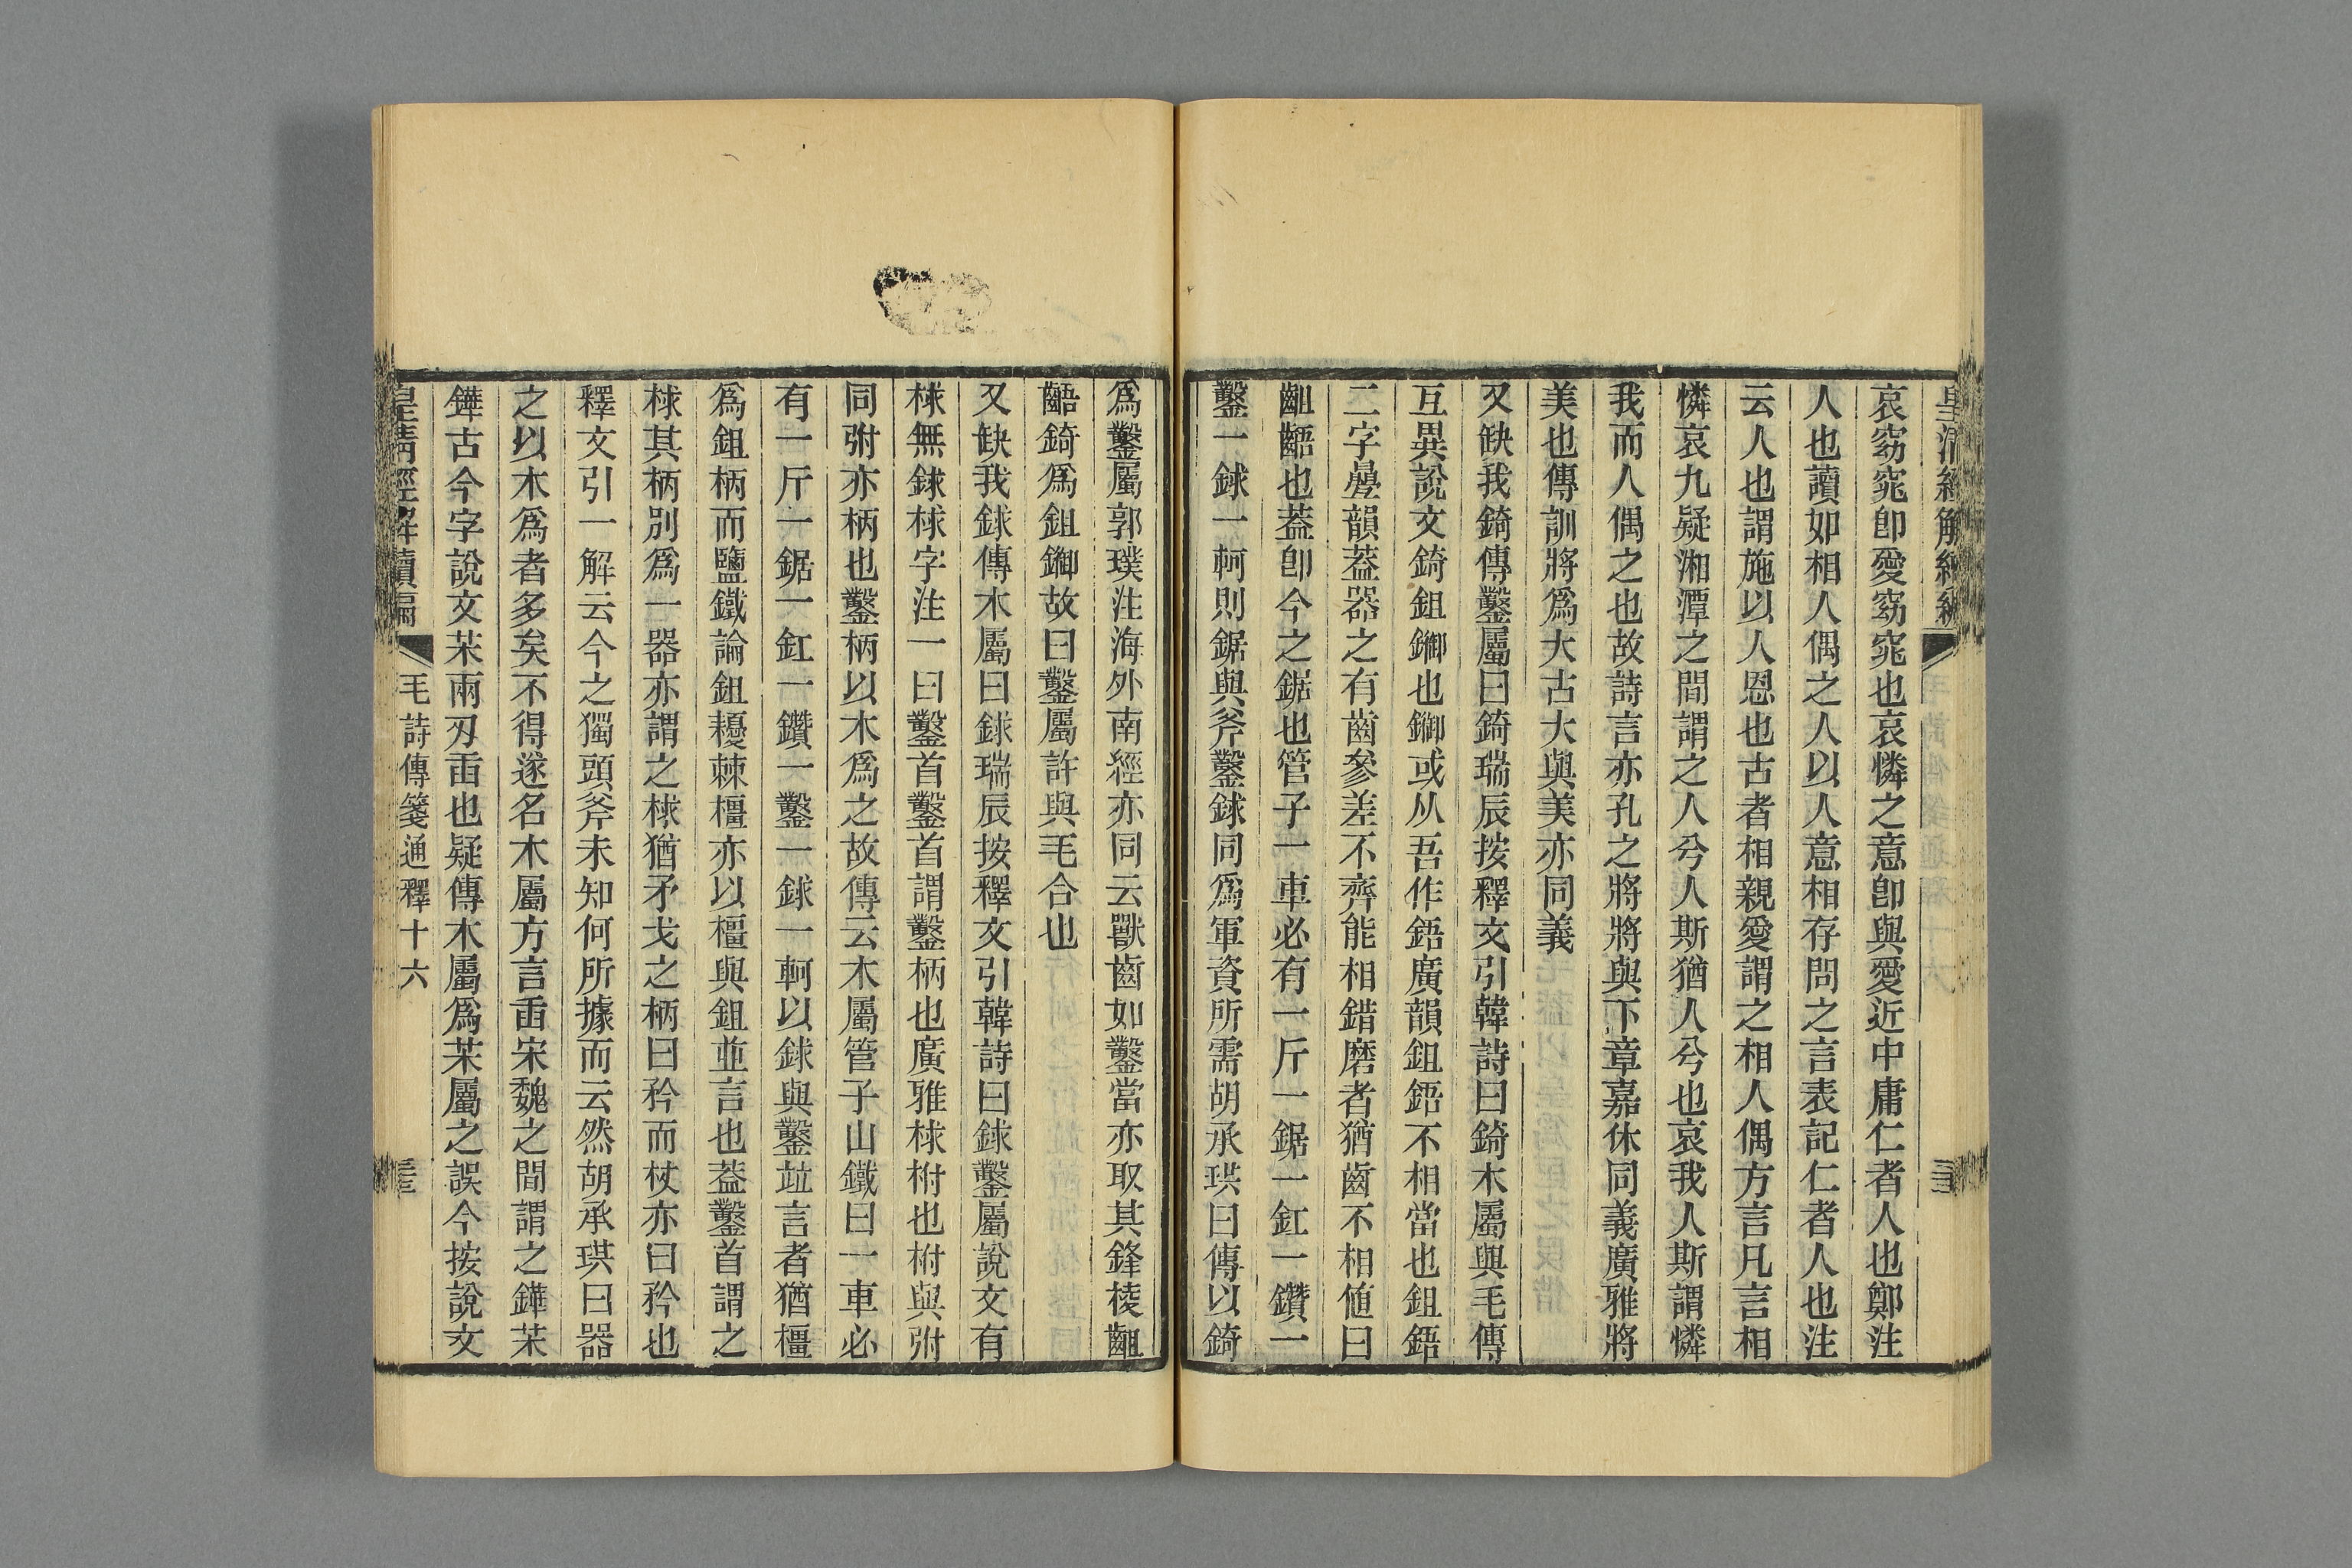 哀窈窕卽愛窈窕也哀憐之意卽與愛近中庸仁者人也鄭注
人也讀如相人偶之人以人意相存問之言表記仁者人也注
云人也謂施以人恩也古者相親愛謂之相人偶方言凡言相
憐哀九疑湘潭之間謂之人兮人斯猶人兮也哀我人斯謂憐
我而人偶之也故詩言亦孔之將將與下章嘉休同義廣雅將
美也傳訓將爲大古大與美亦同義
又缺我錡傳鑿屬曰錡瑞辰按釋文引韓詩曰錡木屬與毛傳
互異說文錡鉏鋤也鋤或从吾作鋙廣韻鉏鋙不相當也鉏鋙
二字疊韻葢器之有齒參差不齊能相錯磨者猶齒不相値曰
齟齬也葢卽今之鋸也管子一車必有一斤一鋸一釭一鑽一
鑿一銶一軻則鋸與斧鑿銶同爲軍資所需胡承珙曰傳以錡
爲鑿屬郭璞注海外南經亦同云獸齒如鑿當亦取其鋒棱齟
齬錡爲鉏鋤故曰鑿屬許與毛合也
又缺我銶傳木屬曰銶瑞辰按釋文引韓詩曰銶鑿屬說文有
梂無銶梂字注一曰鑿首鑿首謂鑿柄也廣雅梂柎也柎與弣
同弣亦柄也鑿柄以木爲之故傳云木屬管子山鐵曰一車必
有一斤一鋸一釭一鑽一鑿一銶一軻以銶與鑿竝言者猶橿
爲鉏柄而鹽鐵論鉏耰棘橿亦以橿與鉏竝言也葢鑿首謂之
梂其柄別爲一器亦謂之梂猶矛戈之柄曰矜而杖亦曰矜也
釋文引一解云今之獨頭斧未知何所據而云然胡承珙曰器
之以木爲者多矣不得遂名木屬方言臿宋魏之間謂之鏵茮
鏵古今字說文茮兩刃臿也疑傳木屬爲茮屬之誤今按說文
皇淸經解續編　毛詩傳箋通釋十六